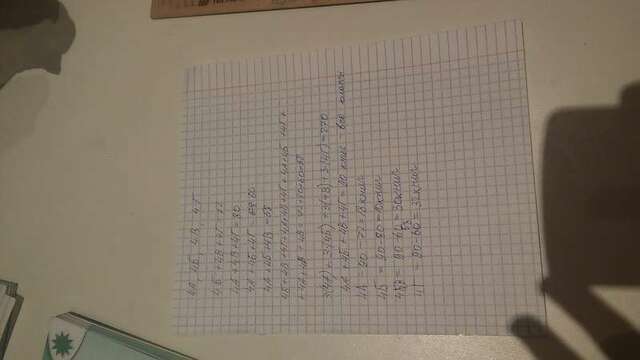 4А, 4Б, 4В, 4Г
4Б + 4В + 4Г = 72
4А + 4В + 4Г = 80
4А + 4Б + 4Г = 60
4А + 4Б + 4В = 58
4Б + 4В + 4Г + 4А + 4В + 4Г + 4А + 4Б + 4Г +
+ 4А + 4Б + 4В = 72+80+60+58
3(4А) + 3(4Б) + 3(4В) + 3(4Г) = 270
4А + 4Б + 4В + 4Г = 90 книг все классы
4А = 90 - 72 = 18 книг
4Б = 90 - 80 = 10 книг
4В = 90 - 60 = 30 книг
4Г = 90 - 58 = 32 книг